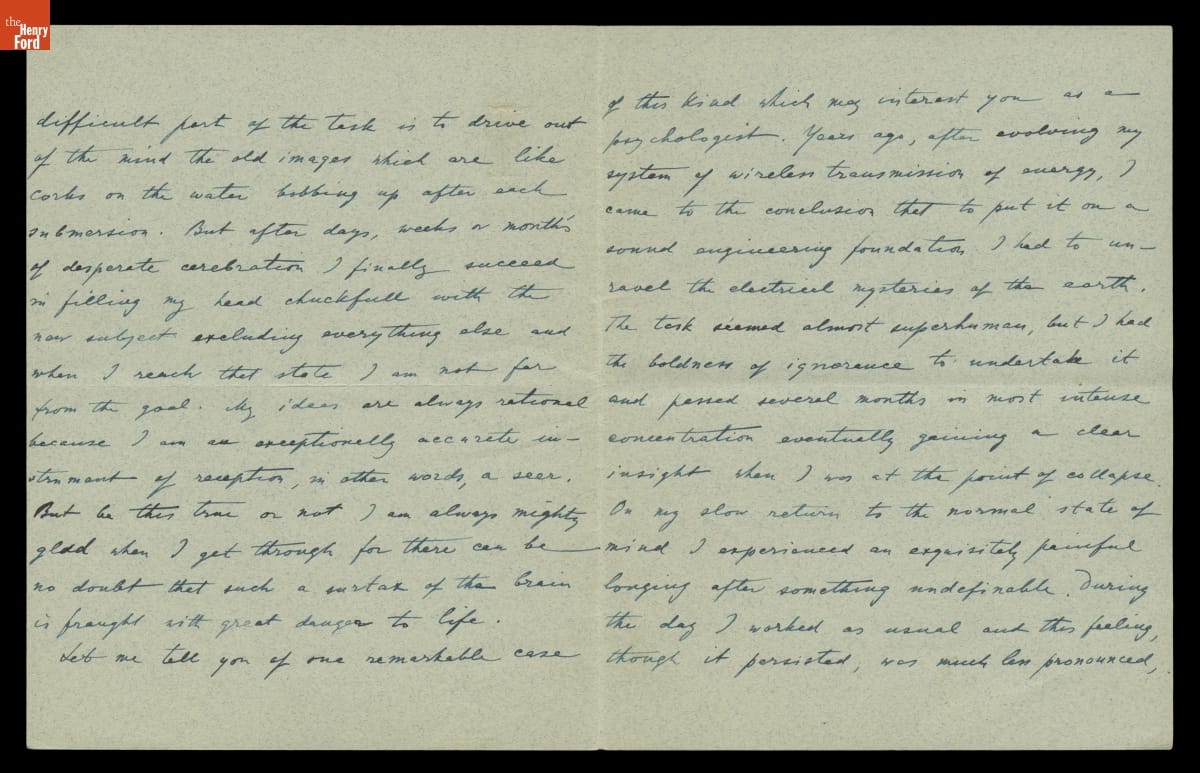 the
Henry
Ford
difficult part of the task is to drive out
of the mind the old images which are like
corks on the water bobbing up after each
submersion. But after days, weeks or months
of desperate cerebration I finally succeed
in filling my head chuckfull with the
new subject excluding everything else and
when I reach that state I am not far
from the goal. My ideas are always rational
because I am an exceptionally accurate in-
strument of reception, in other words, a seer.
But be this true or not I am always mighty
glad when I get through for there can be
no doubt that such a surtax of the brain
is fraught with great danger to life.
Let me tell you of one remarkable case
of this kind which may interest you as a
psychologist. Years ago, after evolving my
system of wireless transmission of energy, I
came to the conclusion that to put it on a
sound engineering foundation I had to un-
ravel the electrical mysteries of the earth.
The task seemed almost superhuman, but I had
the boldness of ignorance to undertake it
and passed several months in most intense
concentration eventually gaining a clear
insight when I was at the point of collapse.
On my slow return to the normal state of
mind I experienced an exquisitely painful
longing after something undefinable. During
the day I worked as usual and this feeling,
though it persisted, was much less pronounced,